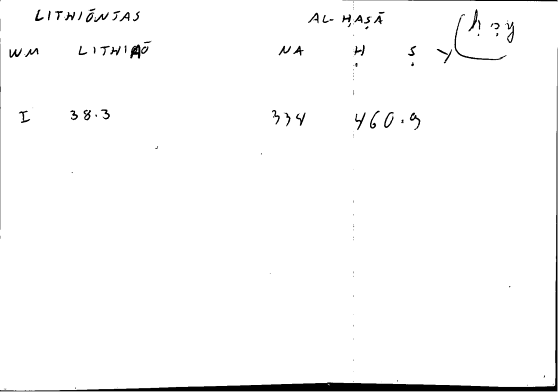 LITHIŌNTAS AL-ḤAṢĀ
WM LITHIAŌ NA Ḥ Ṣ Y
I 38.3 334 460.9